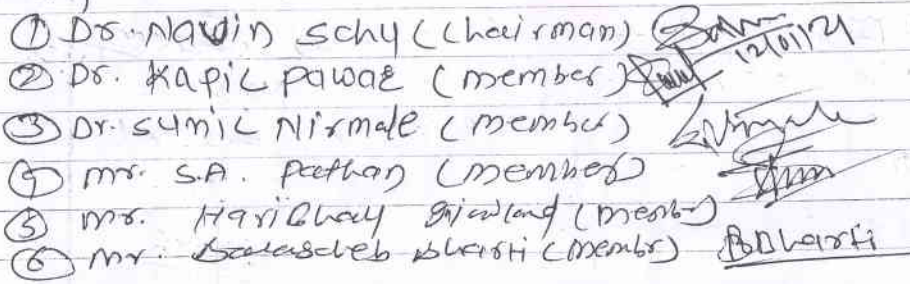 ① Dr. Navin Schy (Chairman) 12/01/21
② Dr. Kapil Pawar (member)
③ Dr. Sunil Nirmale (member)
④ mr. S.A. Pathan (member)
⑤ mr. Haribhau (member)
⑥ mr. Balasaheb Bharti (membr) BBharti